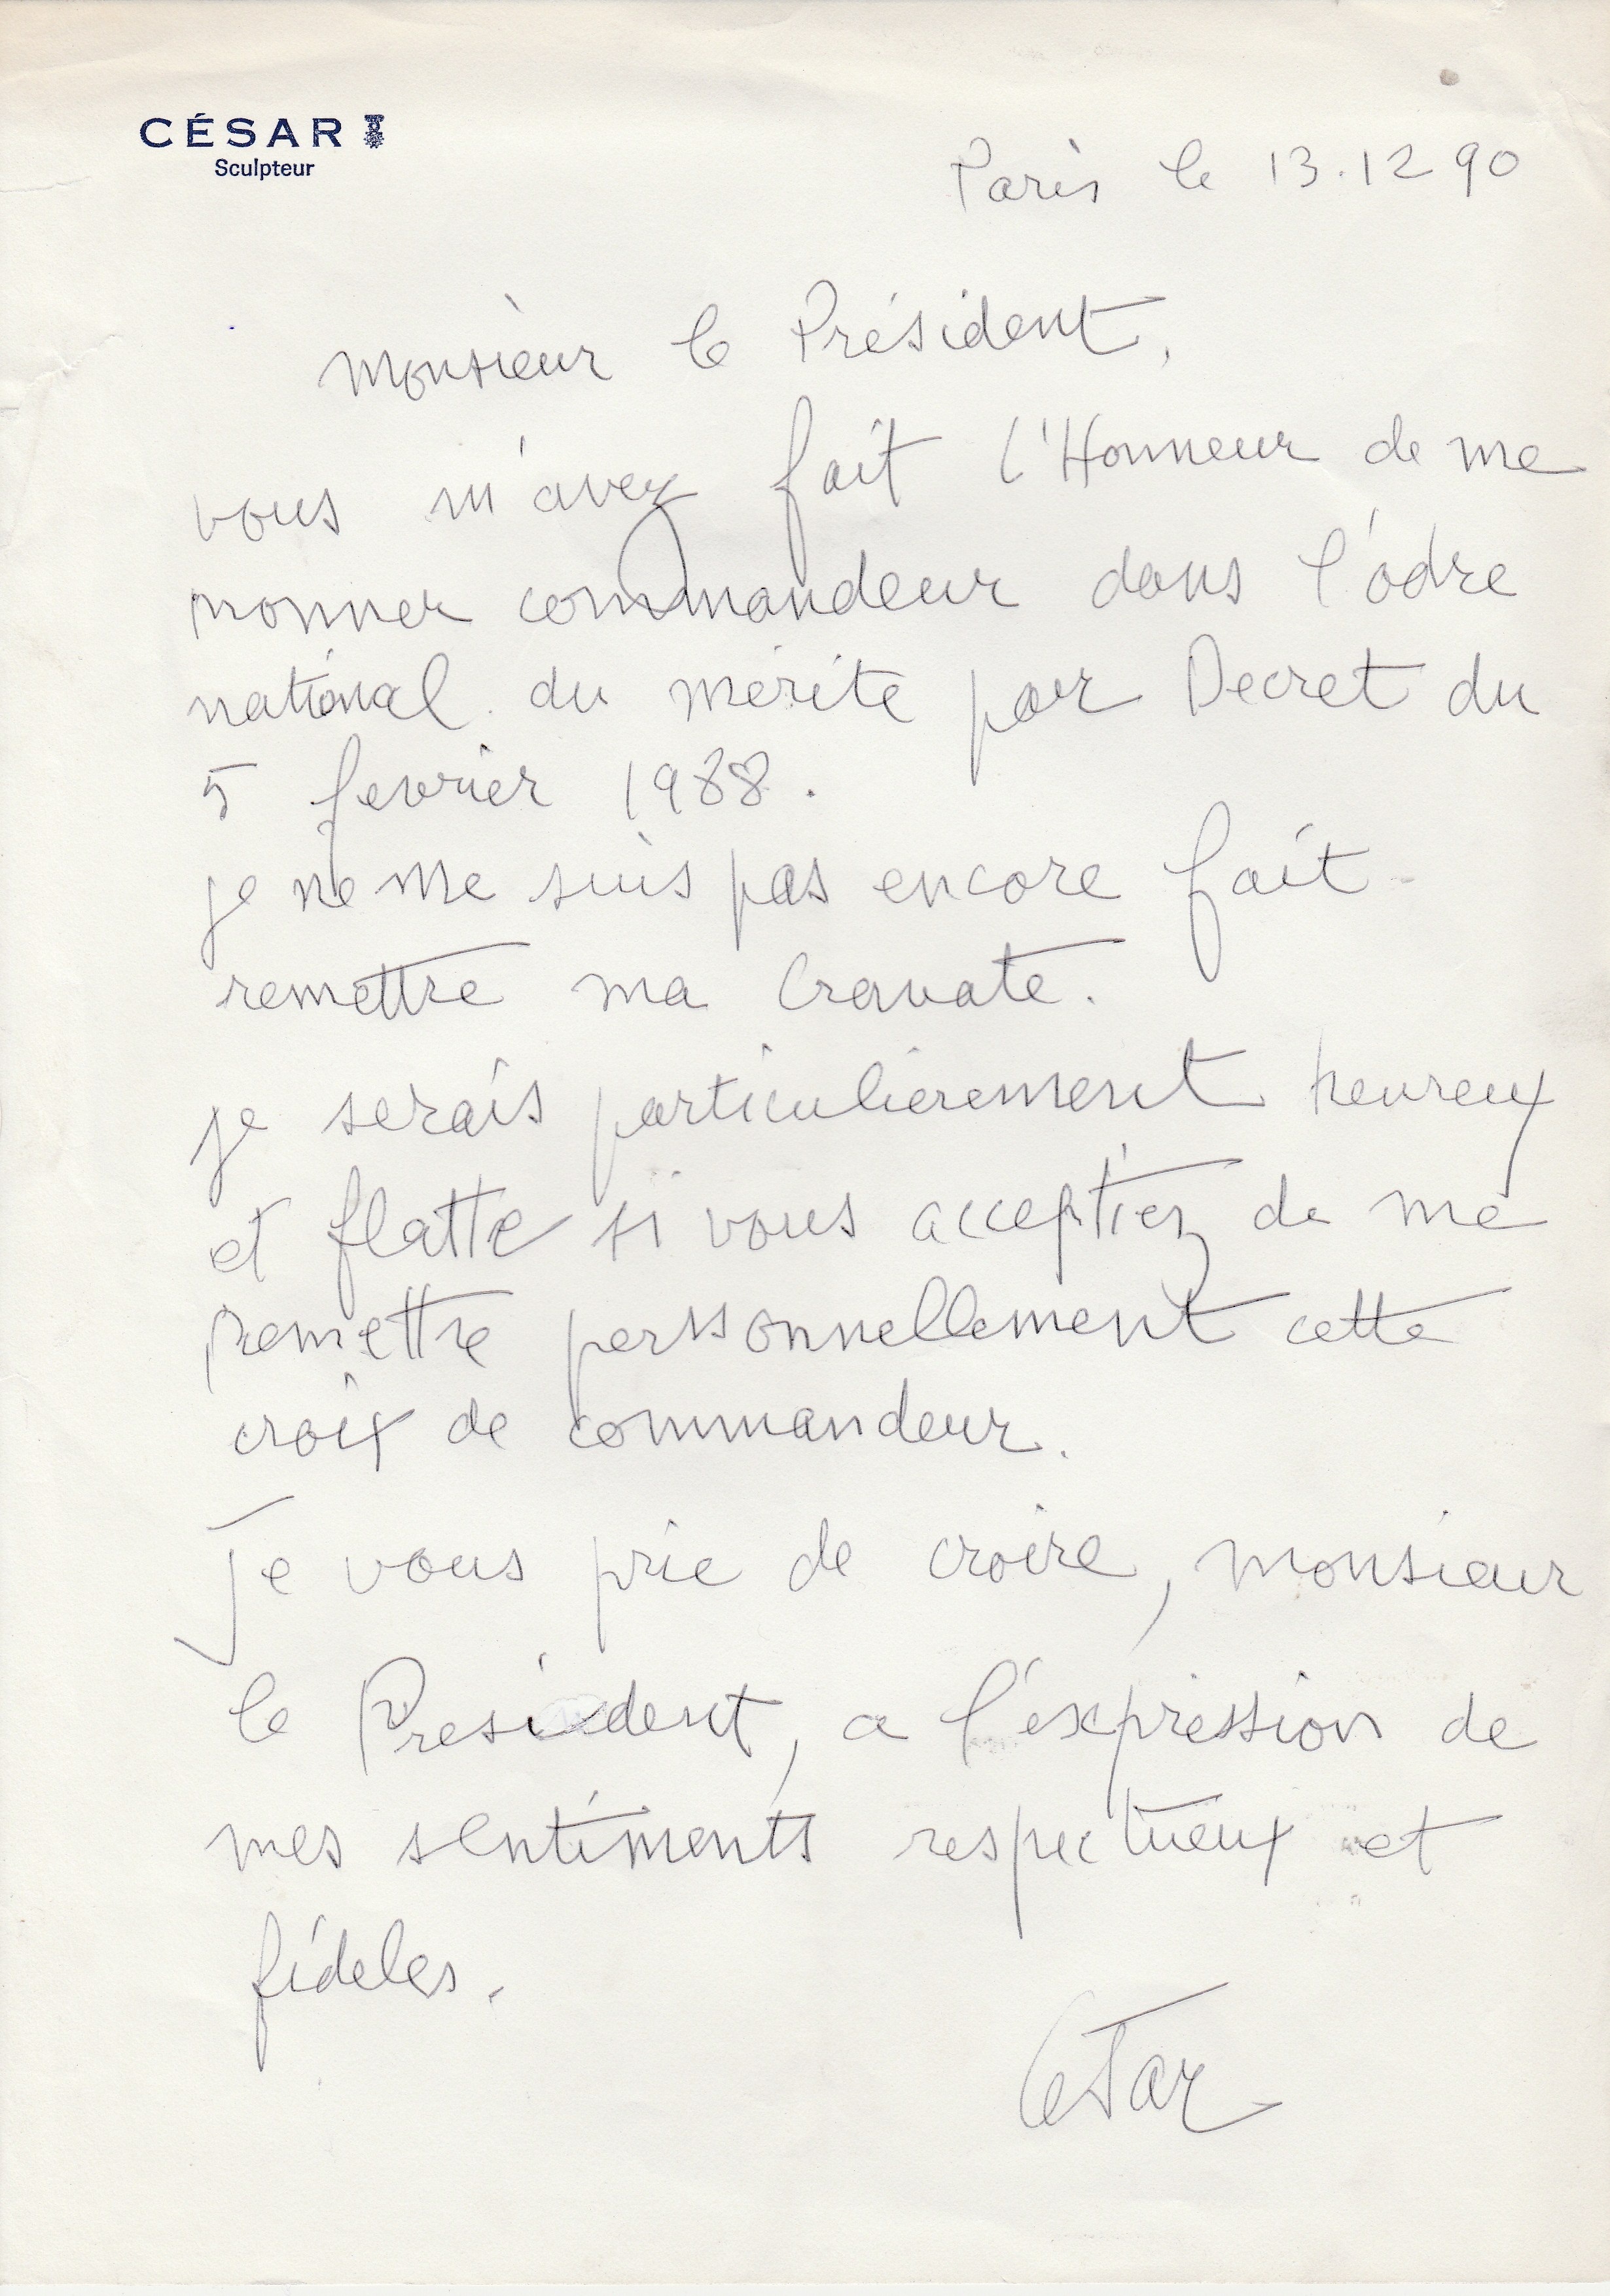 CÉSAR
Sculpteur
Paris le 13.12 90
Monsieur le Président,
vous m'avez fait l'Honneur de me
nonner commandeur dans l'odre
national du mérite par Decret du
5 fevrier 1988.
je ne me suis pas encore fait
remettre ma Cravate.
je serais particulierement heureux
et flatte si vous acceptiez de me
remettre personnellement cette
croix de commandeur.
Je vous prie de croire, monsieur
le President, a l'éxpression de
mes sentiments respectueux et
fideles.
César